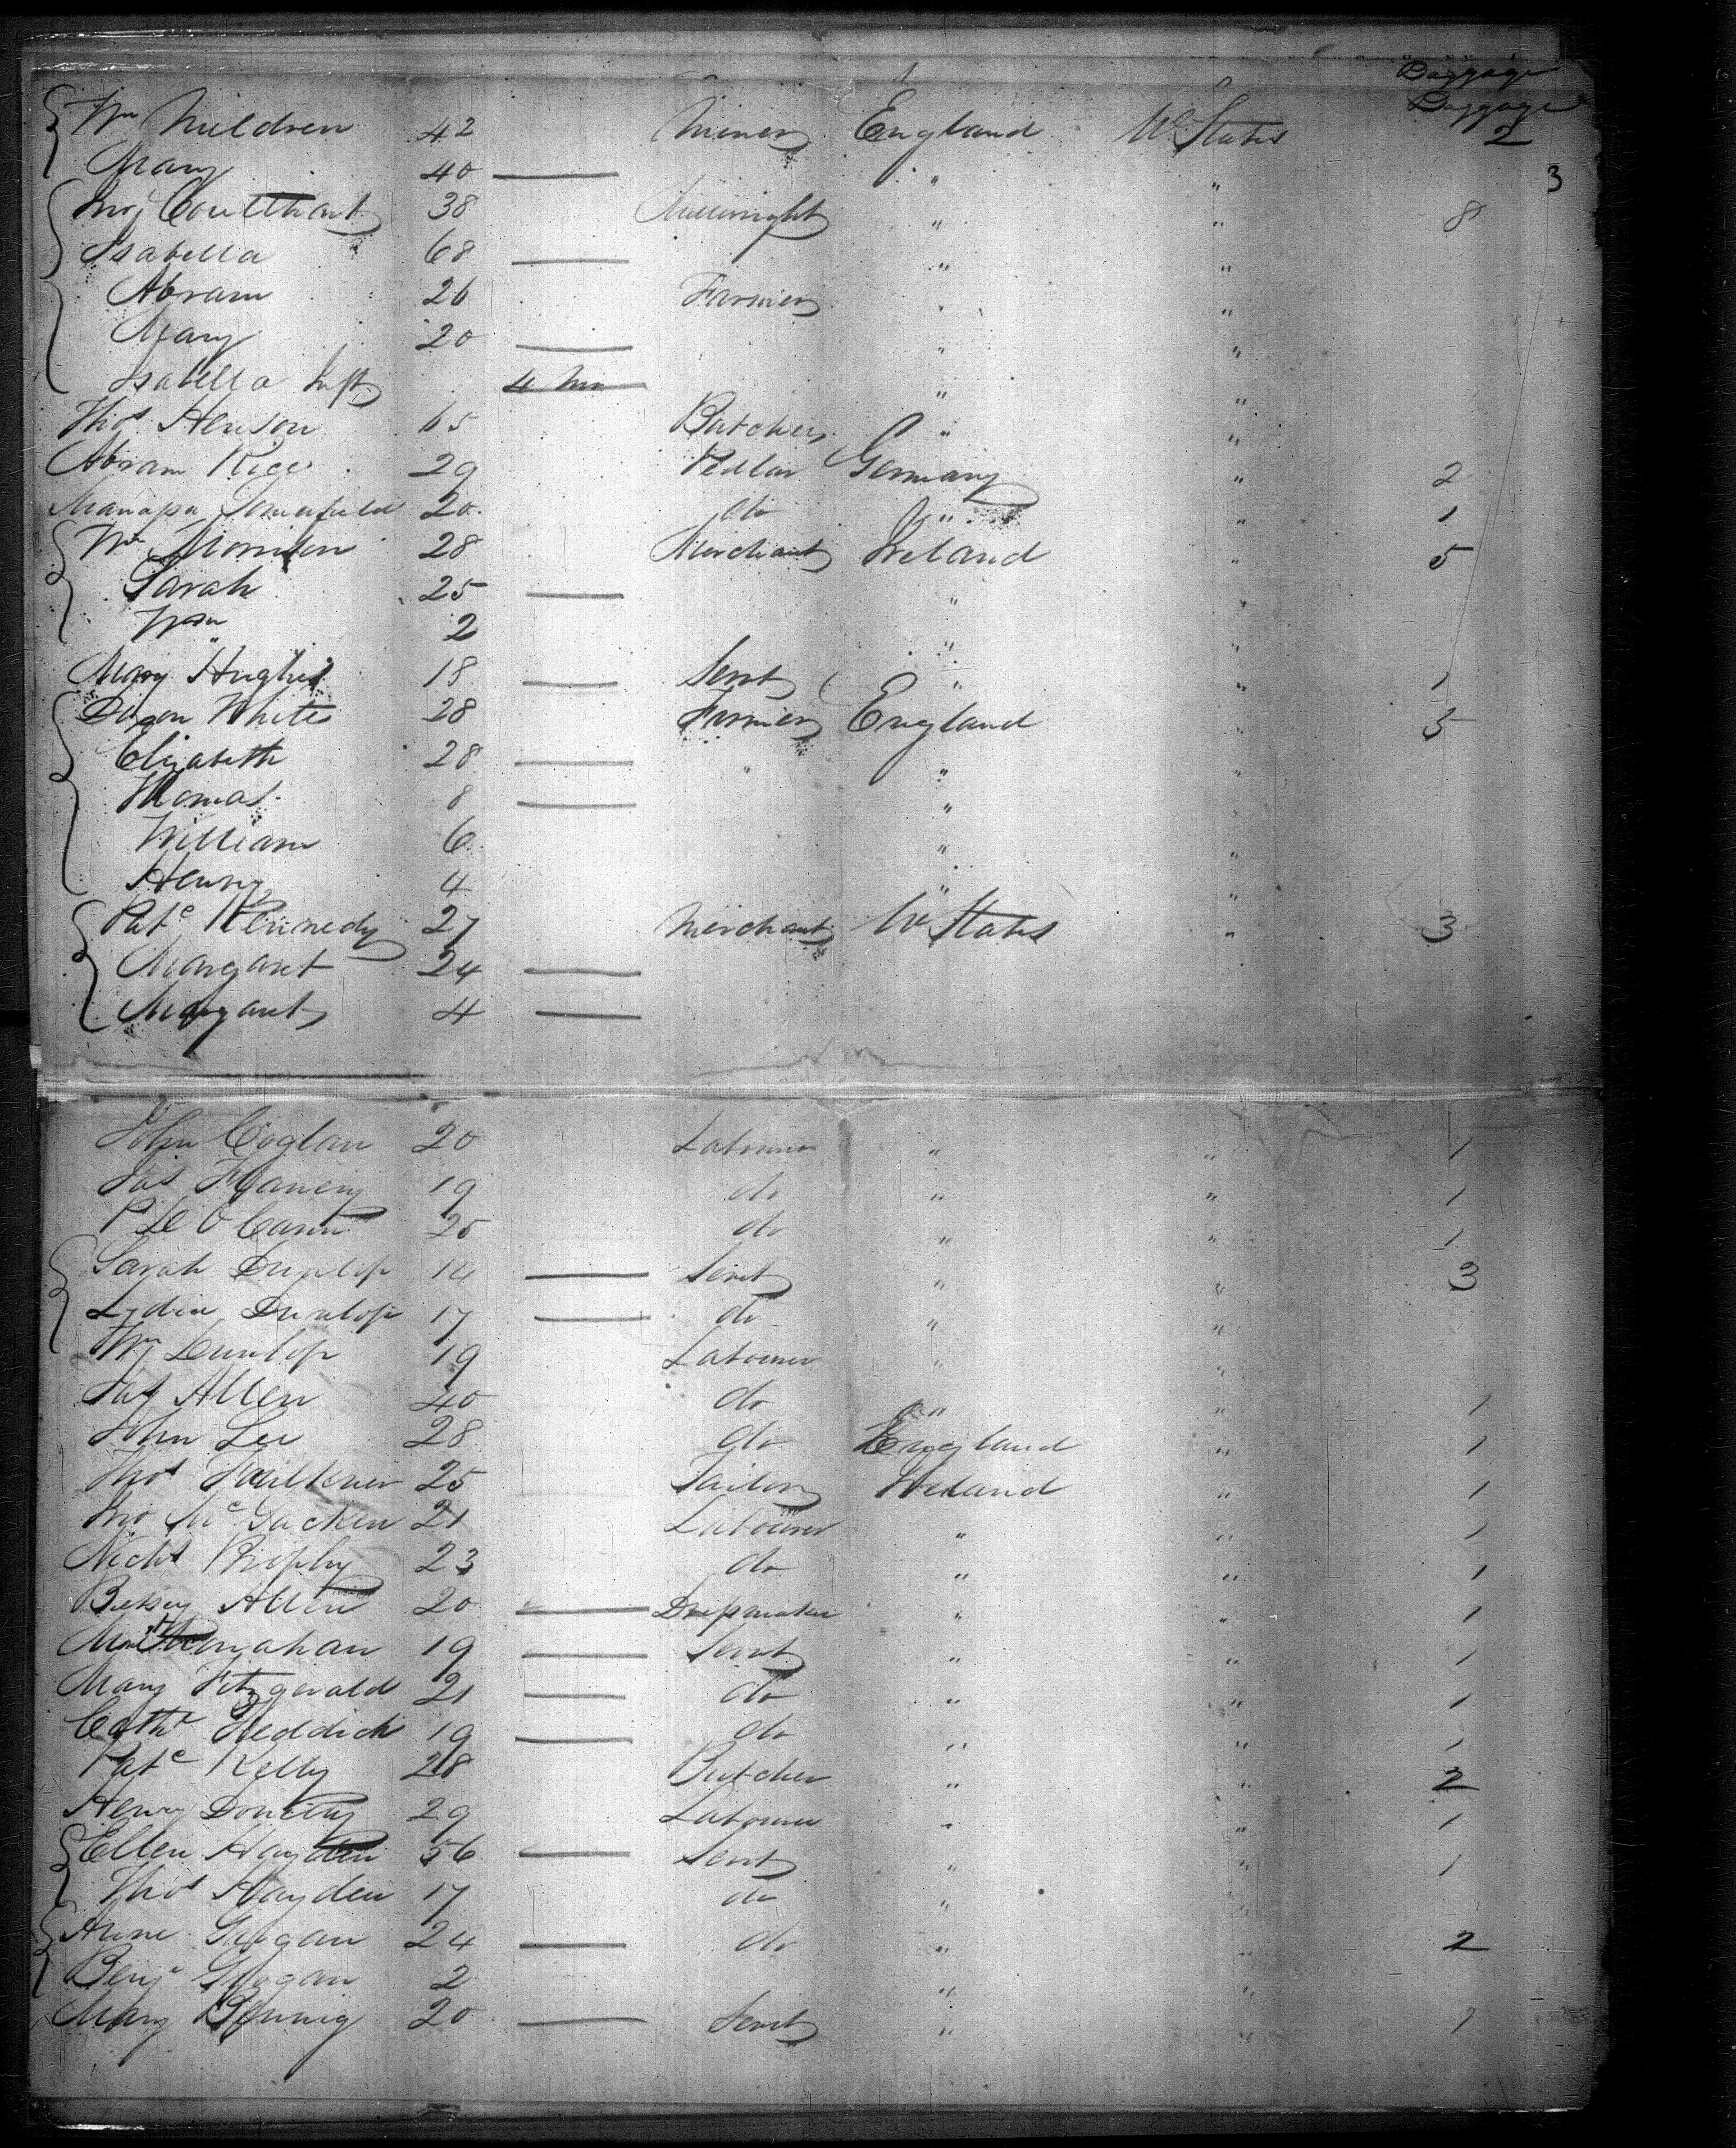 Baggage
Baggage
Wm Mildren 42 Miner England U States 2
Mary 40 — " " 3
Jno Coulthart 38 Millwright " " 8
Isabella 68 — " "
Abram 26 Farmer " "
Mary 20 — " "
Isabella Inft 4 Mo " "
Thos Henson 65 Butcher " "
Abram Rice 29 Pedlar Germany " 2
20 do " " 1
Wm Morrison 28 Merchant Ireland " 5
Sarah 25 — " "
Wm 2 " "
Mary Hughes 18 — Servt " " 1
Dixon White 28 Farmer England " 5
Elizabeth 28 — " "
Thomas 8 — "
William 6 " "
Henry 4 " "
Patc Kennedy 27 Merchant U States " 3
Margaret 24 —
Margaret 4 —
John Coglan 20 Labourer " " 1
Jas 19 do " " 1
25 do " " 1
Sarah Dunlop 14 — Servt " " 3
Lydia Dunlop 17 — do " "
Wm Dunlop 19 Labourer " "
Allen 40 do " " 1
John Lee 28 do England " 1
Thos Faulkner 25 Tailor Ireland " 1
Jno Mc Gucken 21 Labourer " " 1
Nichs 23 do " " 1
Betsey Allen 20 — Dressmaker " " 1
Monahan 19 — Servt " " 1
Mary Fitzgerald 21 — do " " 1
Cathe Heddick 19 — do " " 1
Patc Kelly 28 Butcher " " 2
Henry 29 Labourer " " 1
Ellen Hayden 56 — Servt " " 1
Thos Hayden 17 do " "
Anne Grogan 24 — do " " 2
Benj Grogan 2 " "
Mary 20 — Servt " " 1